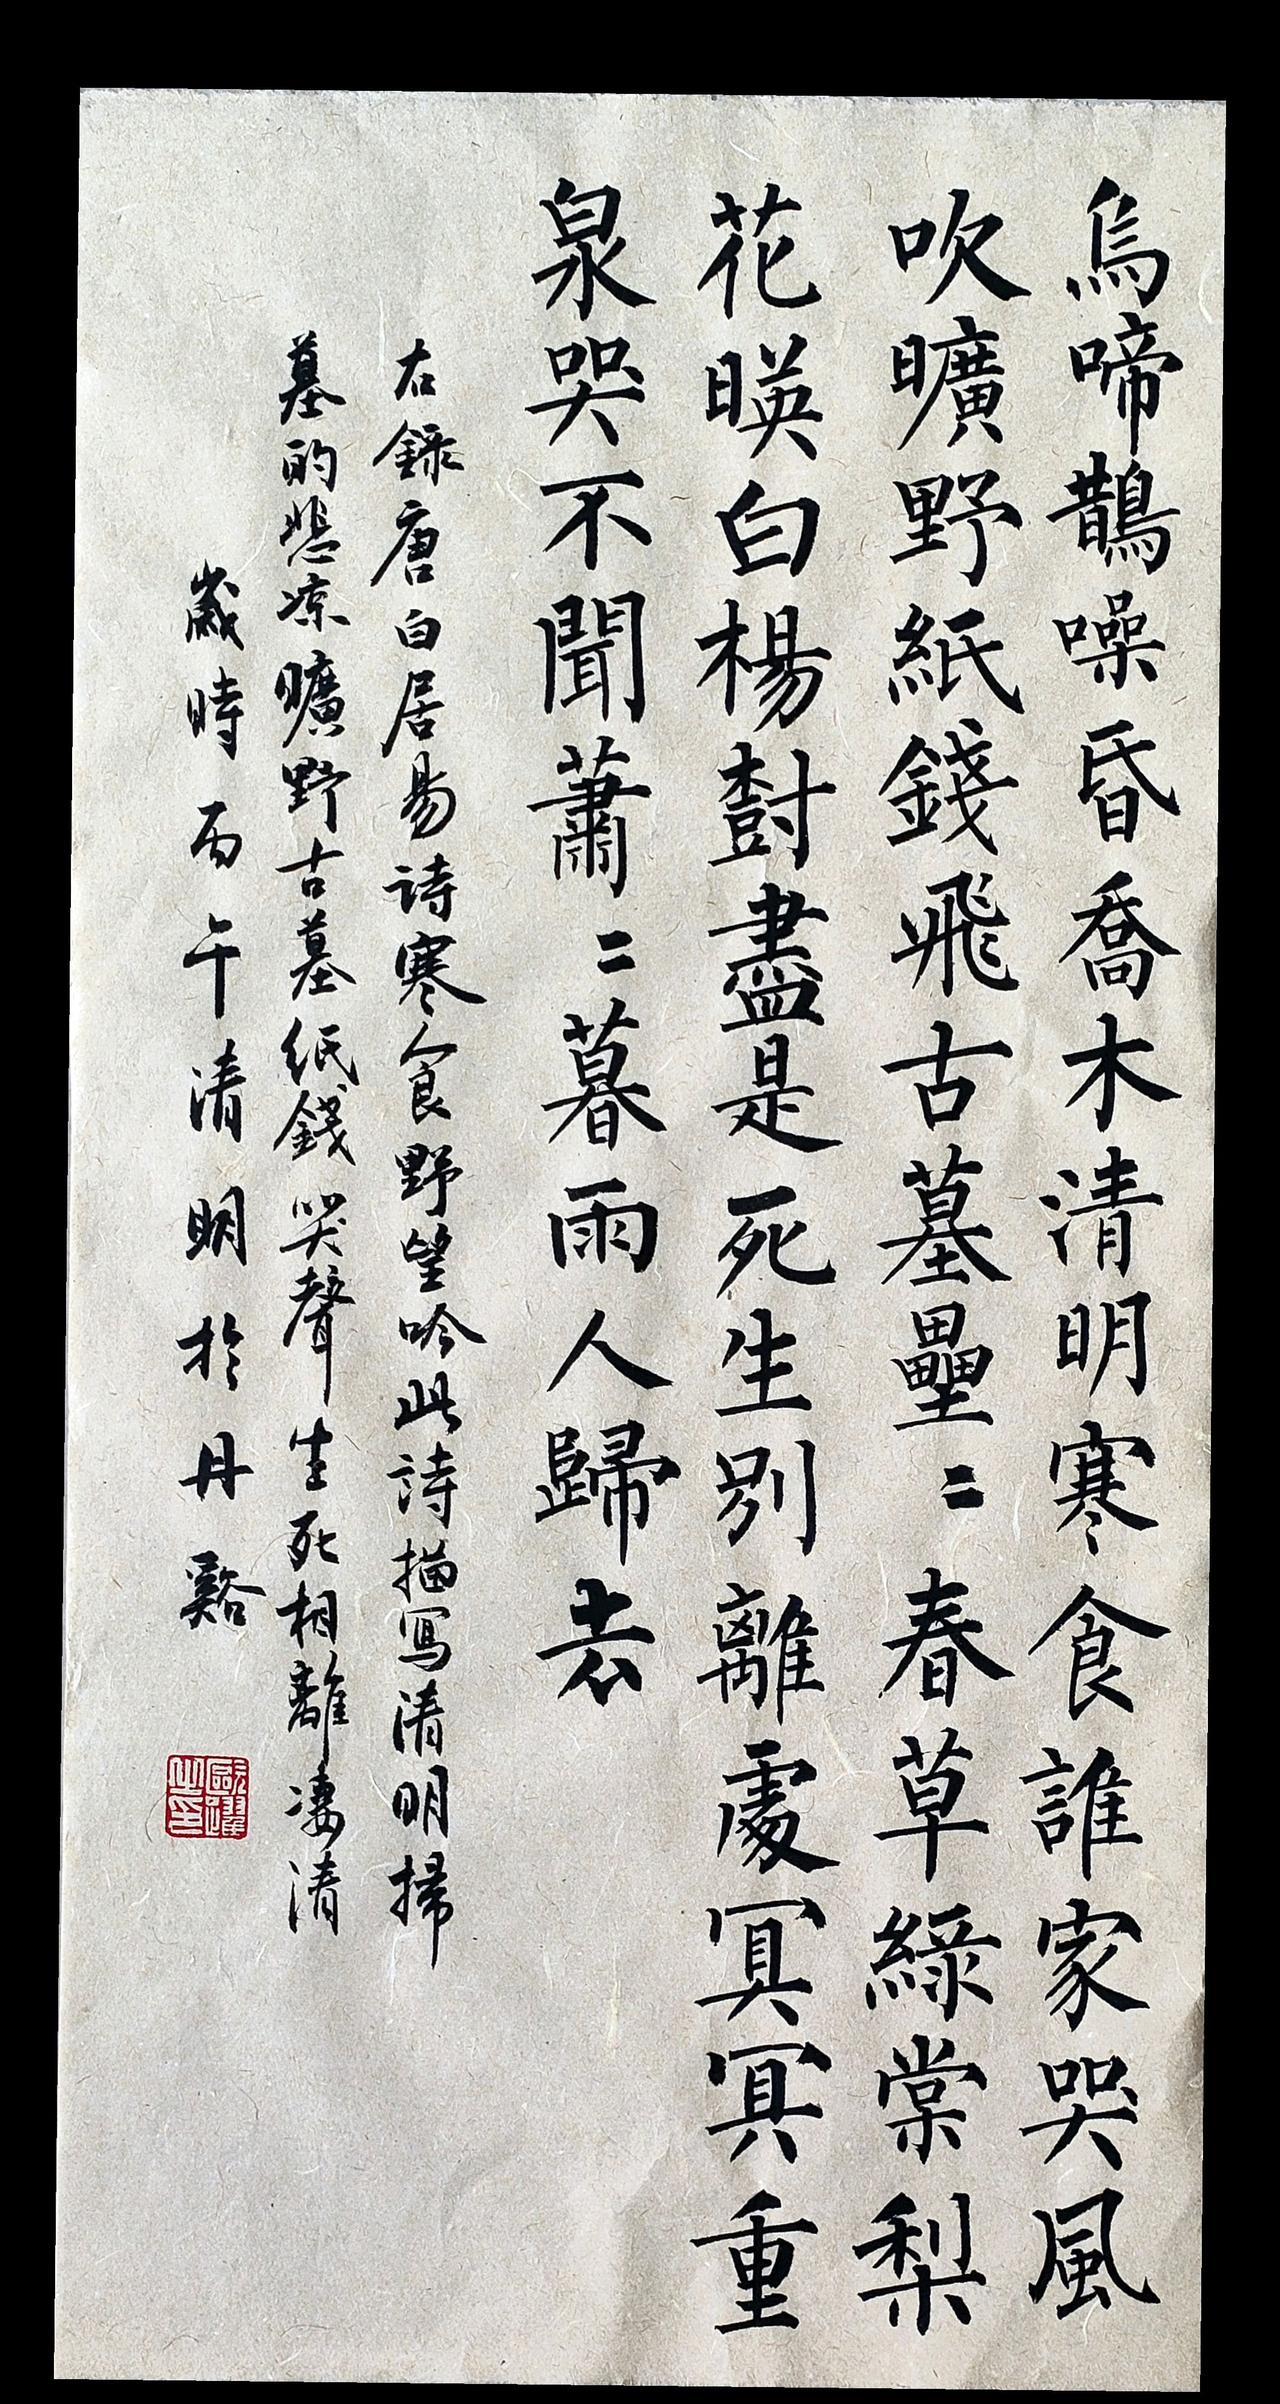 烏啼鵲噪昏喬木清明寒食誰家哭風
吹曠野紙錢飛古墓壘〻春草綠棠梨
花暎白楊樹盡是死生別離處冥冥重
泉哭不聞蕭〻暮雨人歸去
右錄唐白居易詩寒食野望吟此詩描寫清明掃
墓的悲凉曠野古墓紙錢哭聲生死相離凄清
歲時丙午清明於丹谿